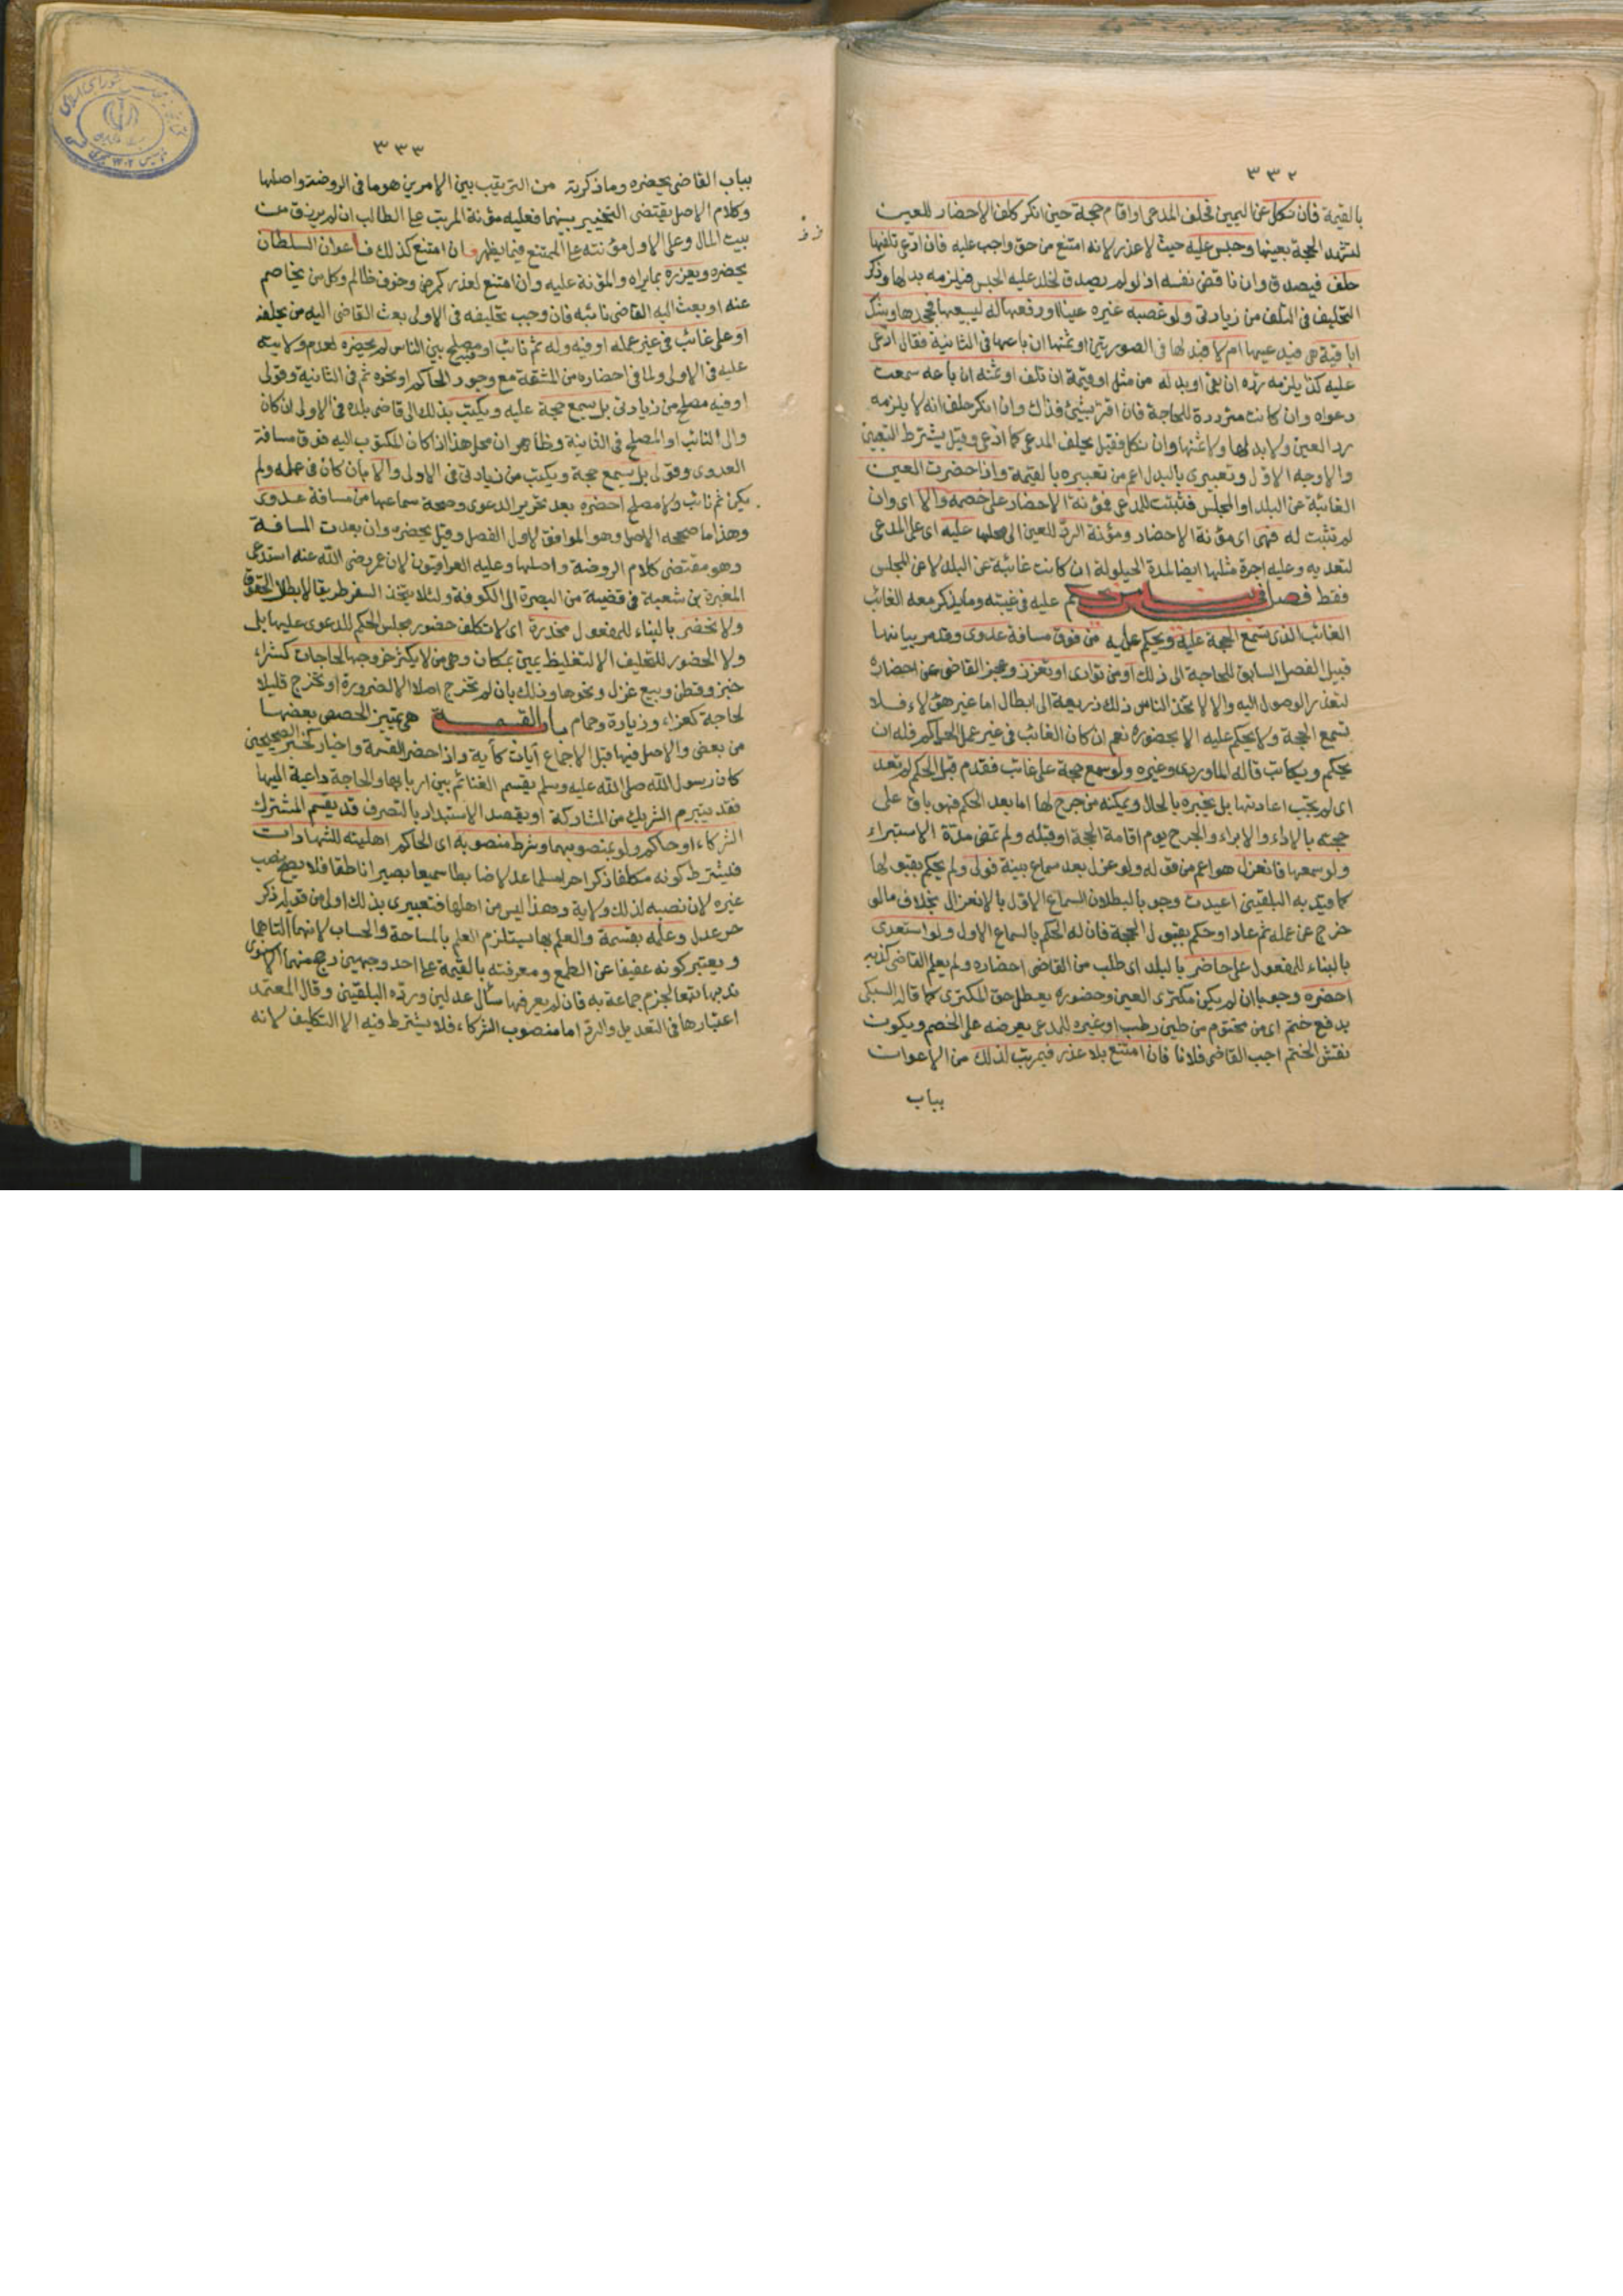 ٣٣٢
بالقيمة فان نكل عن اليمين فحلف المدعى او اقام حجة حين انكر كلف الاحضار للعين
لتشهد الحجة بعينها وحبس عليه حيث لا عذر لانه امتنع من حق واجب عليه فان ادعى تلفها
حلف فيصدق وان ناقض نفسه اذ لو لم يصدق لخلد عليه الحبس فيلزمه بدلها وذكر
التحليف فى التلف من زيادتى ولو غصبه غيره عينا او دفعها له ليبيعها فجحدها وشك
اباقية هى فيدعيها ام لا فبدلها فى الصورتين او ثمنها ان باعها فى الثانية فقال ادعى
عليه كذا يلزمه رده ان بقى او بدله من مثل او قيمة ان تلف او ثمنه ان باعه سمعت
دعواه وان كانت مترددة للحاجة فان اقر بشئ فذاك وان انكر حلف انه لا يلزمه
رد العين ولا بدلها ولا ثمنها وان نكل فقيل يحلف المدعى كما ادعى وقيل يشترط التعيين
والاوجه الاول وتعبيرى بالبدل اعم من تعبيره بالقيمة واذا حضرت العين
الغائبة عن البلد او المجلس فثبتت للمدعى فمؤنة الاحضار على خصمه والا اى وان
لم تثبت له فهى اى مؤنة الاحضار ومؤنة الرد للعين الى محلها عليه اى على المدعى
لتعديه وعليه اجرة مثلها ايضا لمدة الحيلولة ان كانت غائبة عن البلد لا عن المجلس
فقط فصل فى بيان من يحكم عليه فى غيبته وما يذكر معه الغائب
الغائب الذى تسمع الحجة عليه ويحكم عليه من فوق مسافة عدوى وقد مر بيانها
قبيل الفصل السابق للحاجة الى ذلك او من توارى او تعزز وعجز القاضى عن احضاره
لتعذر الوصول اليه والا لاتخذ الناس ذلك ذريعة الى ابطال اما غير هؤلاء فلا
تسمع الحجة ولا يحكم عليه الا بحضوره نعم ان كان الغائب فى غير عمل الحاكم فله ان
يحكم ويكاتب قاله الماوردى وغيره ولو سمع حجة على غائب فقدم قبل الحكم لم تعد
اى لم يجب اعادتها بل يخبره بالحال ويمكنه من جرح لها اما بعد الحكم فهو باق على
حجته بالاداء والابراء والجرح يوم اقامة الحجة او قبله ولم تمض مدة الاستبراء
ولو سمعها فانعزل هو اعم من قوله ولو عزل بعد سماع بينة فولى ولم يحكم بقبولها
كما قيد به البلقينى اعيدت وجوبا لبطلان السماع الاول بالانعزال بخلاف ما لو
خرج عن عمله ثم عاد او حكم بقبول الحجة فان له الحكم بالسماع الاول ولو استعدى
بالبناء للمفعول على حاضر بالبلد اى طلب من القاضى احضاره ولم يعلم القاضى كذبه
احضره وجوبا ان لم يكن مكترى العين وحضوره يعطل حق المكترى كما قاله السبكى
بدفع ختم اى من مختوم من طين رطب او غيره للمدعى يعرضه على الخصم ويكون
نقش الختم اجب القاضى فلانا فان امتنع بلا عذر فبمرتب لذلك من الاعوان
بباب
٣٣٣
بباب القاضى يحضره وما ذكرته من الترتيب بين الامرين هو ما فى الروضة واصلها
وكلام الاصل يقتضى التخيير بينهما فعليه مؤنة المرتب على الطالب ان لم يرزق من
بيت المال وعلى الاول مؤنته على الممتنع فيما يظهر فان امتنع كذلك فاعوان السلطان
يحضره ويعزره بما يراه والمؤنة عليه وان امتنع لعذر كمرض وخوف ظالم وكل من يخاصم
عنه او بعث اليه القاضى نائبه فان وجب تحليفه فى الاولى بعث القاضى اليه من يحلفه
او على غائب فى غير عمله او فيه وله ثم نائب او مصلح بين الناس لم يحضره لعدم ولايته
عليه فى الاولى ولما فى احضاره من المشقة مع وجود الحاكم او نحوه ثم فى الثانية وقولى
او فيه مصلح من زيادتى بل يسمع حجة عليه ويكتب بذلك الى قاضى بلده فى الاولى ان كان
والى النائب او المصلح فى الثانية وظاهر ان محل هذا اذا كان المكتوب اليه فوق مسافة
العدوى وقولى بل يسمع حجة ويكتب من زيادتى فى الاولى والا بان كان فى عمله ولم
يكن ثم نائب ولا مصلح احضره بعد تحرير الدعوى وصحة سماعها من مسافة عدوى
وهذا ما صححه الاصل وهو الموافق لاول الفصل وقيل يحضره وان بعدت المسافة
وهو مقتضى كلام الروضة واصلها وعليه العراقيون لان عمر رضى الله عنه استدعى
المغيرة بن شعبة فى قضية من البصرة الى الكوفة ولئلا يتخذ السفر طريقا لابطال الحقوق
ولا تحضر بالبناء للمفعول مخدرة اى لا تكلف حضور مجلس الحكم للدعوى عليها بل
ولا الحضور للتحليف الا لتغليظ يمين بمكان وهى من لا يكثر خروجها لحاجات كشراء
خبز وقطن وبيع غزل ونحوها وذلك بان لم تخرج اصلا الا لضرورة او تخرج قليلا
لحاجة كعزاء وزيارة وحمام باب القسمة هى تمييز الحصص بعضها
من بعض والاصل فيها قبل الاجماع آيات كآية واذا حضر القسمة واخبار كخبر الصحيحين
كان رسول الله صلى الله عليه وسلم يقسم الغنائم بين اربابها والحاجة داعية اليها
فقد يتبرم الشريك من المشاركة او يقصد الاستبداد بالتصرف قد يقسم المشترك
الشركاء او حاكم ولو بمنصوبهما وشرط منصوبه اى الحاكم اهليته للشهادات
فيشترط كونه مكلفا ذكرا حرا مسلما عدلا ضابطا سميعا بصيرا ناطقا فلا يصح نصب
غيره لان نصبه لذلك ولاية وهذا ليس من اهلها فتعبيرى بذلك اولى من قوله ذكر
حر عدل وعلمه بقسمة والعلم بها يستلزم العلم بالمساحة والحساب لانهما آلتاها
ويعتبر كونه عفيفا عن الطمع ومعرفته بالقيمة على احد وجهين رجح منهما الاسنوى
ندبها تبعا لجزم جماعة به فان لم يعرفها سأل عدلين ورده البلقينى وقال المعتمد
اعتبارها فى التعديل والرد اما منصوب الشركاء فلا يشترط فيه الا التكليف لانه